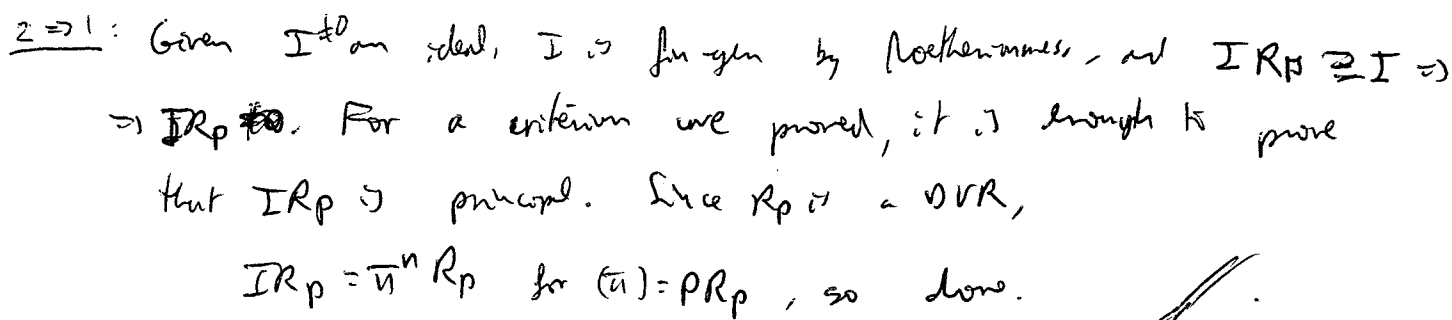 2 ⇒ 1: Given I ≠0 an ideal, I is fin-gen by Noetherianness, and I R_P ⊇ I ⇒
⇒ IR_P ≠0. For a criterion we proved, it is enough to prove
that IR_P is principal. Since R_P is a DVR,
IR_P = π^n R_P for (π) = PR_P, so done.